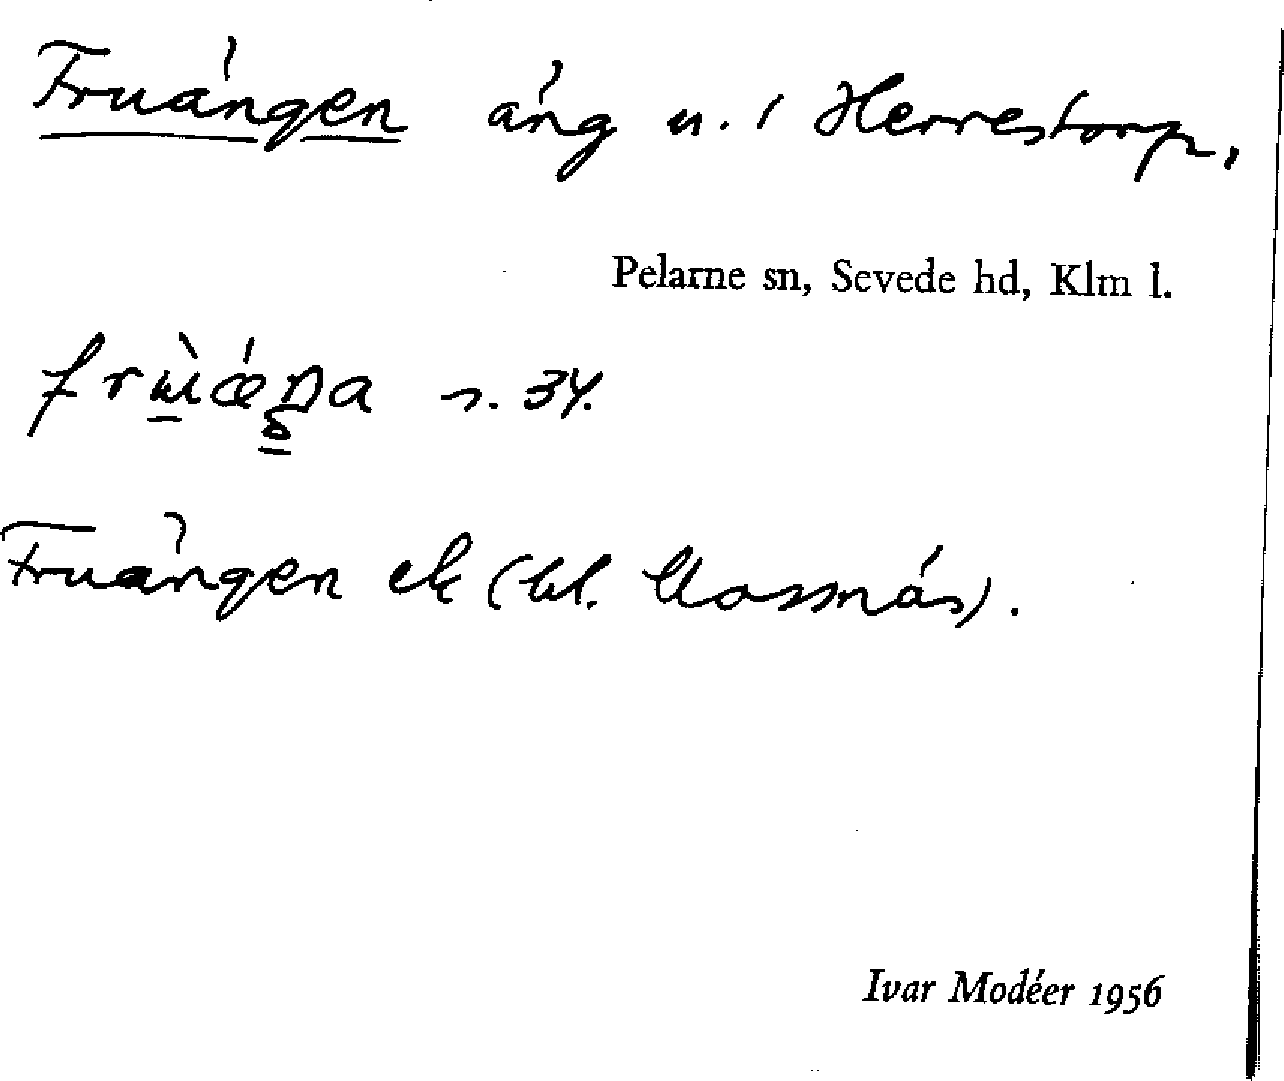 Fruängen äng u. i Herrestorp,
Pelarne sn, Sevede hd, Klm l.
s. 34.
Fruängen ek (bl. Mossnäs).
Ivar Modéer 1956